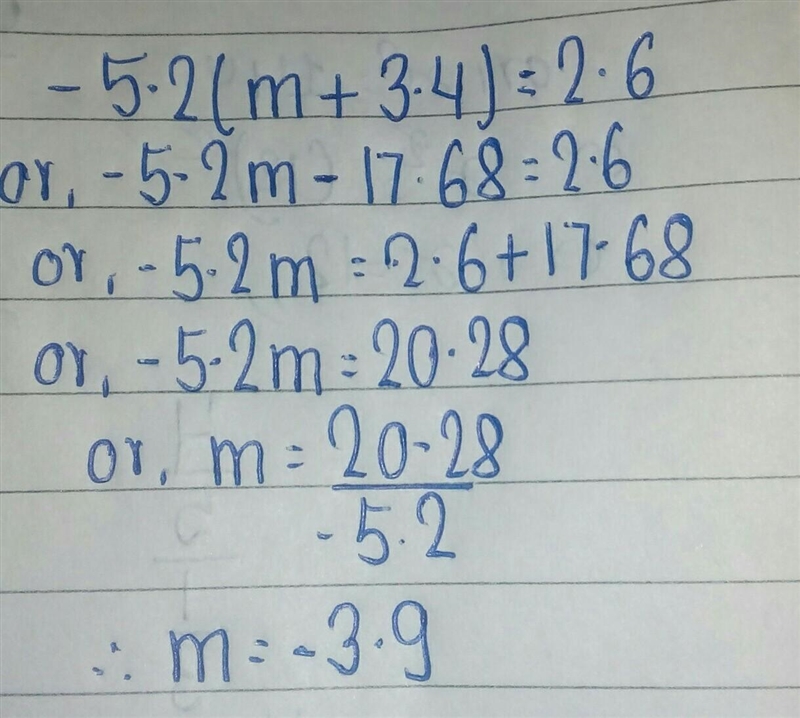 -5.2(m+3.4)=2.6
or, -5.2m-17.68=2.6
or, -5.2m=2.6+17.68
or, -5.2m=20.28
or, m=20.28
-5.2
∴ m=-3.9